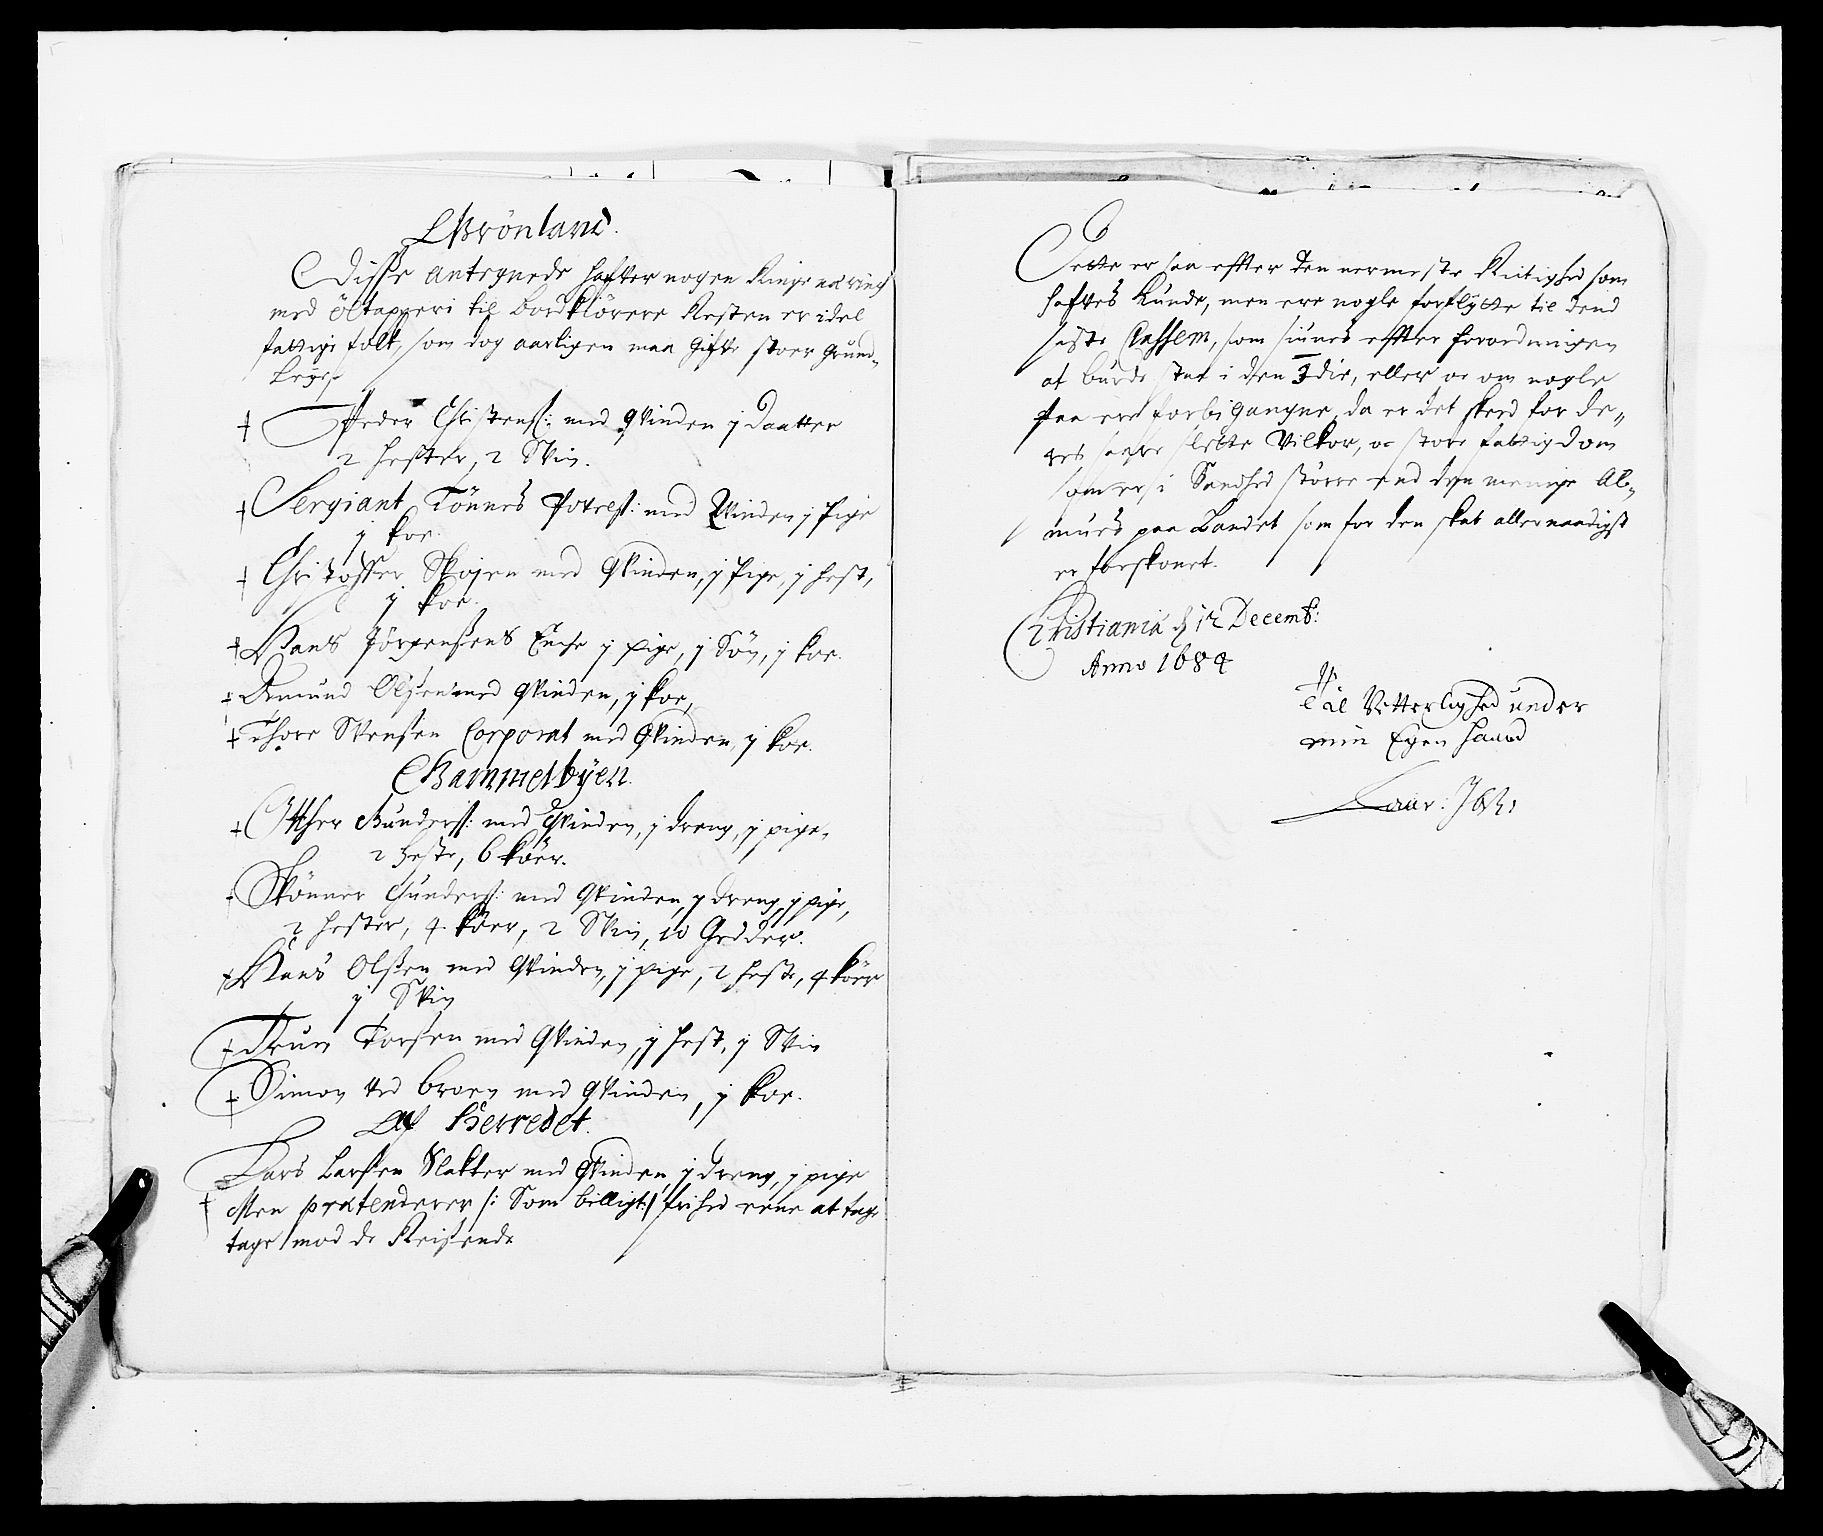 Grönland.
Disse antegnede hafver nogen Ringe næring
med öltapperi til bordkiörere Resten er idel
fattige folk, som dog aarligen maa Gifve stoer Grund-
leye
† Peder Christens: med Qvinden j daatter
2 hester, 2 Svin.
† Sergiant Tönnes Povels: med Qvinden j Pige
j koe.
† Christoffer med Qvinden, j Pige, j hest,
j koe.
† Hans Jörgensens Encke j pige, j Sön, j koe.
† Amund Olsen med Qvinden, j koe,
† Thore Svensen Corporal med Qvinden, j koe.
Gammelbÿen.
† Gunders: med Qvinden, j dreng, j pige,
2 heste, 6 köer.
† Gunders: med Qvinden, j dreng, j pige,
2 hester, 4 köer, 2 Svin, 10 Gedder.
† Hans Olsen med Qvinden, j pige, 2 heste, 4 köer
j Svin
† Torsen med Qvinden, j hest, j Svin
† Simon ved broen med Qvinden, j koe.
Af Herredet.
Lars Larsen Slakter med Qvinden, j dreng, j pige
† Men prætenderer /: Som billigt :/ frihed at tage
tage mod de Reisende
Dette er saa effter den nermeste Rictighed som
hafves kunde, men ere nogle forflÿtte til dend
siste Classem, som siunes effter forordningen
at burde staa i den 3die, eller oc om nogle
faa ere forbigangne, da er det skeed for de-
res saare slette Vilkor, oc store fattigdom
som er i Sandhed större end den menige Al-
mues paa Landet som for den skat allernaadigst
er forskonet.
Christiania d 12 Decemb:
Anno 1684
Til Vetterlighed under
min Egen haand
Laur: